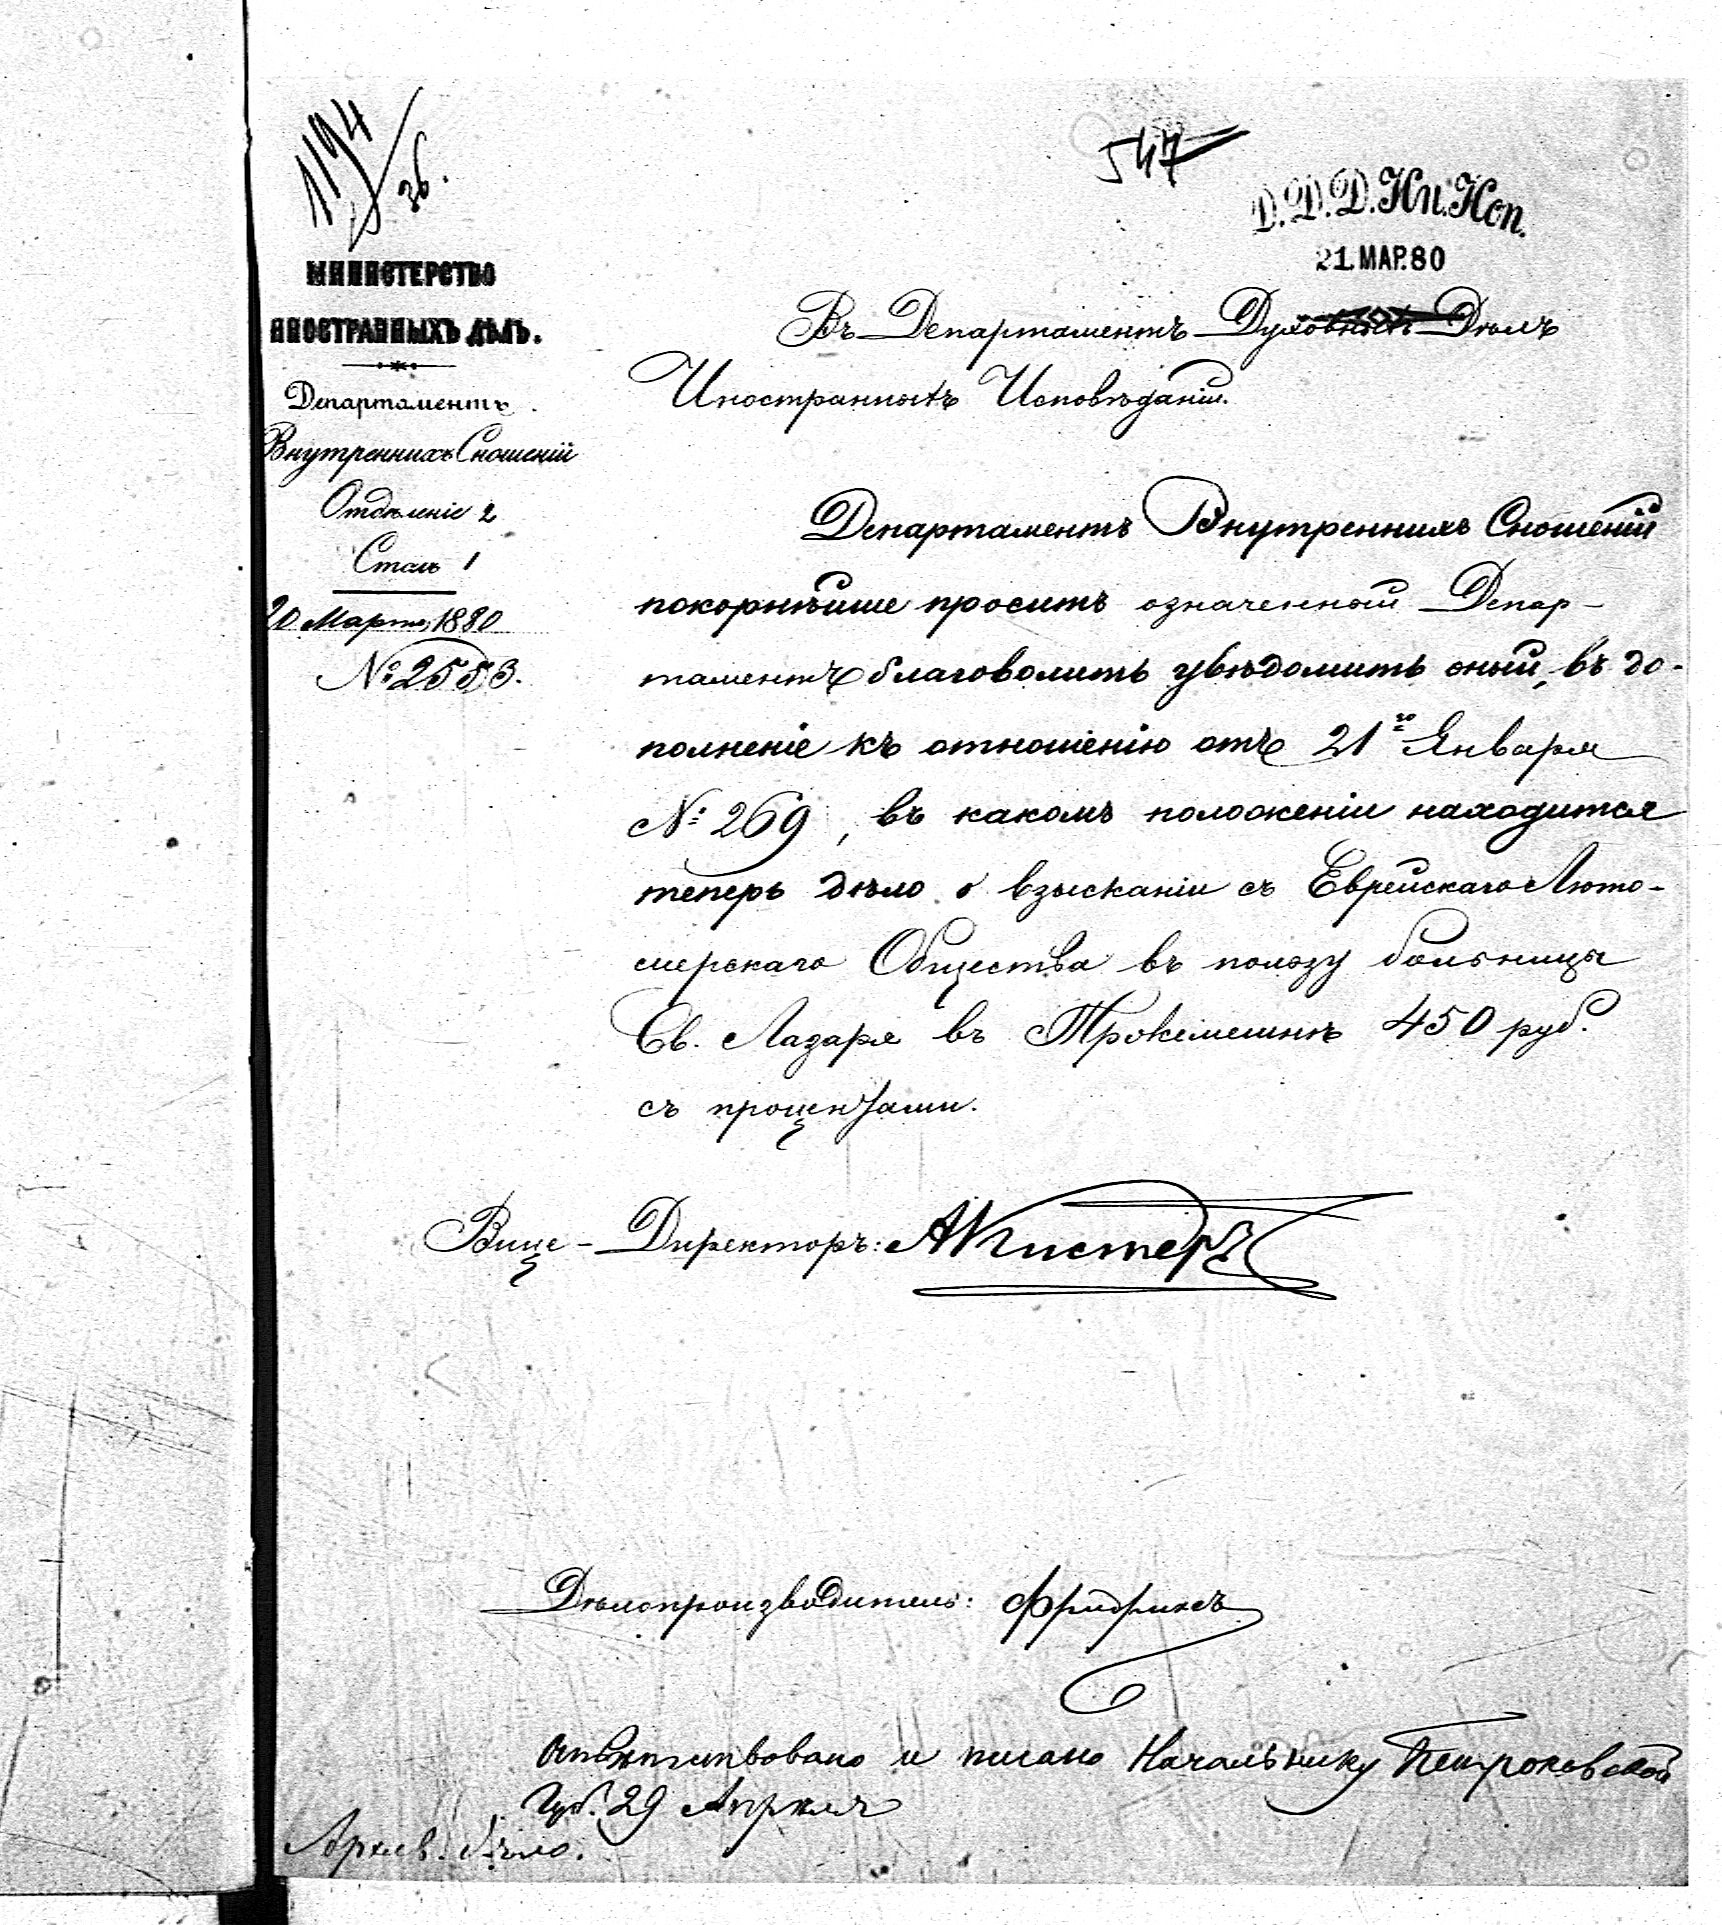 1194
547
Д.Д.Д.Ин.Исп.
21.МАР.80
МИНИСТЕРСТВО
ИНОСТРАННЫХЪ ДѢЛЪ.
Департаментъ
Внутреннихъ Сношеній
Отдѣленіе 2
Столъ 1
20 Марта 1880
№ 2553.
Въ Департаментъ Духовныхъ Дѣлъ
Иностранныхъ Исповѣданій.
Департаментъ Внутреннихъ Сношеній
покорнѣйше проситъ означенный Депар-
таментъ благоволить увѣдомить оный, въ до-
полненіе къ отношенію отъ 21го Января
№ 269, въ какомъ положеніи находится
теперь дѣло о взысканіи съ Еврейскаго Люто-
мерскаго Общества въ пользу больницы
Св. Лазаря въ Тржемешнѣ 450 руб.
съ процентами.
Вице-Директоръ: АКистеръ
Дѣлопроизводитель: Фридрихсъ
и писано Начальнику Петроковской
Губ. 29 Апрѣля